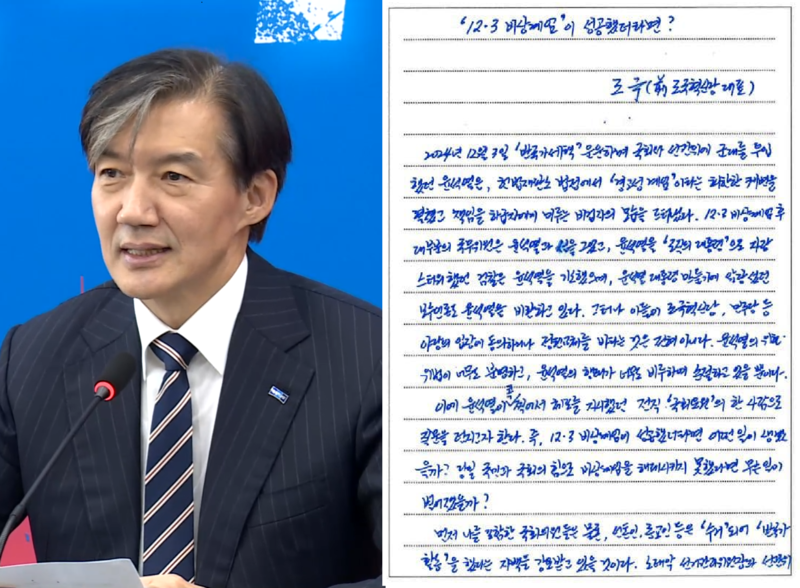 '12·3 비상계엄'이 성공했더라면?
조 국 (前 조국혁신당 대표)
2024년 12월 3일 '반국가세력' 운운하며 국회와 선관위에 군대를 투입
했던 윤석열은, 헌법재판소 법정에서 '경고성 계엄'이라는 희한한 궤변을
펼쳤고 책임을 하급자에게 미루는 비겁자의 모습을 드러냈다. 12·3 비상계엄 후
대부분의 국무위원은 윤석열과 선을 그었고, 윤석열을 '조직의 대통령'으로
스타워했던 검찰은 윤석열을 기소했으며, 윤석열 대통령 만들기에 앞장섰던
보수언론도 윤석열을 비판하고 있다. 그러나 이들이 조국혁신당, 민주당 등
야당의 입장에 동의하거나 정권교체를 바라는 것은 전혀 아니다. 윤석열의
위법이 너무도 분명하고, 윤석열의 행태가 너무도 비루하며 손절하고 있을 뿐이다.
이에 윤석열이 콕 찍어서 체포를 지시했던 전직 '국회의원'의 한 사람으로
질문을 던지고자 한다. 즉, 12·3 비상계엄이 성공했더라면 어떤 일이 생겼
을까? 당일 국민과 국회의 힘으로 비상계엄을 해제시키지 못했다면 무슨 일이
벌어졌을까?
먼저 나를 포함한 국회의원들은 물론, 언론인, 종교인 등은 '수거'되어 '반국가
활동'을 했다는 자백을 강요받고 있을 것이다. 노태악 선거관리위원장과 선관위